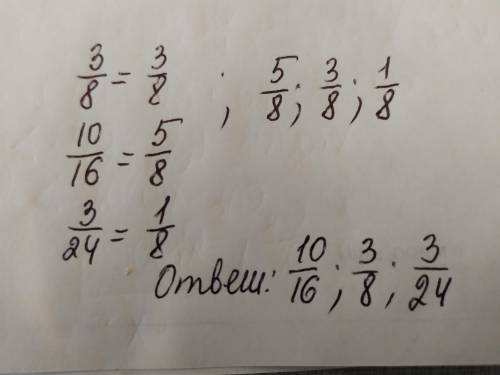 3/8 = 3/8 ; 5/8; 3/8; 1/8
10/16 = 5/8
3/24 = 1/8
Ответ: 10/16; 3/8; 3/24